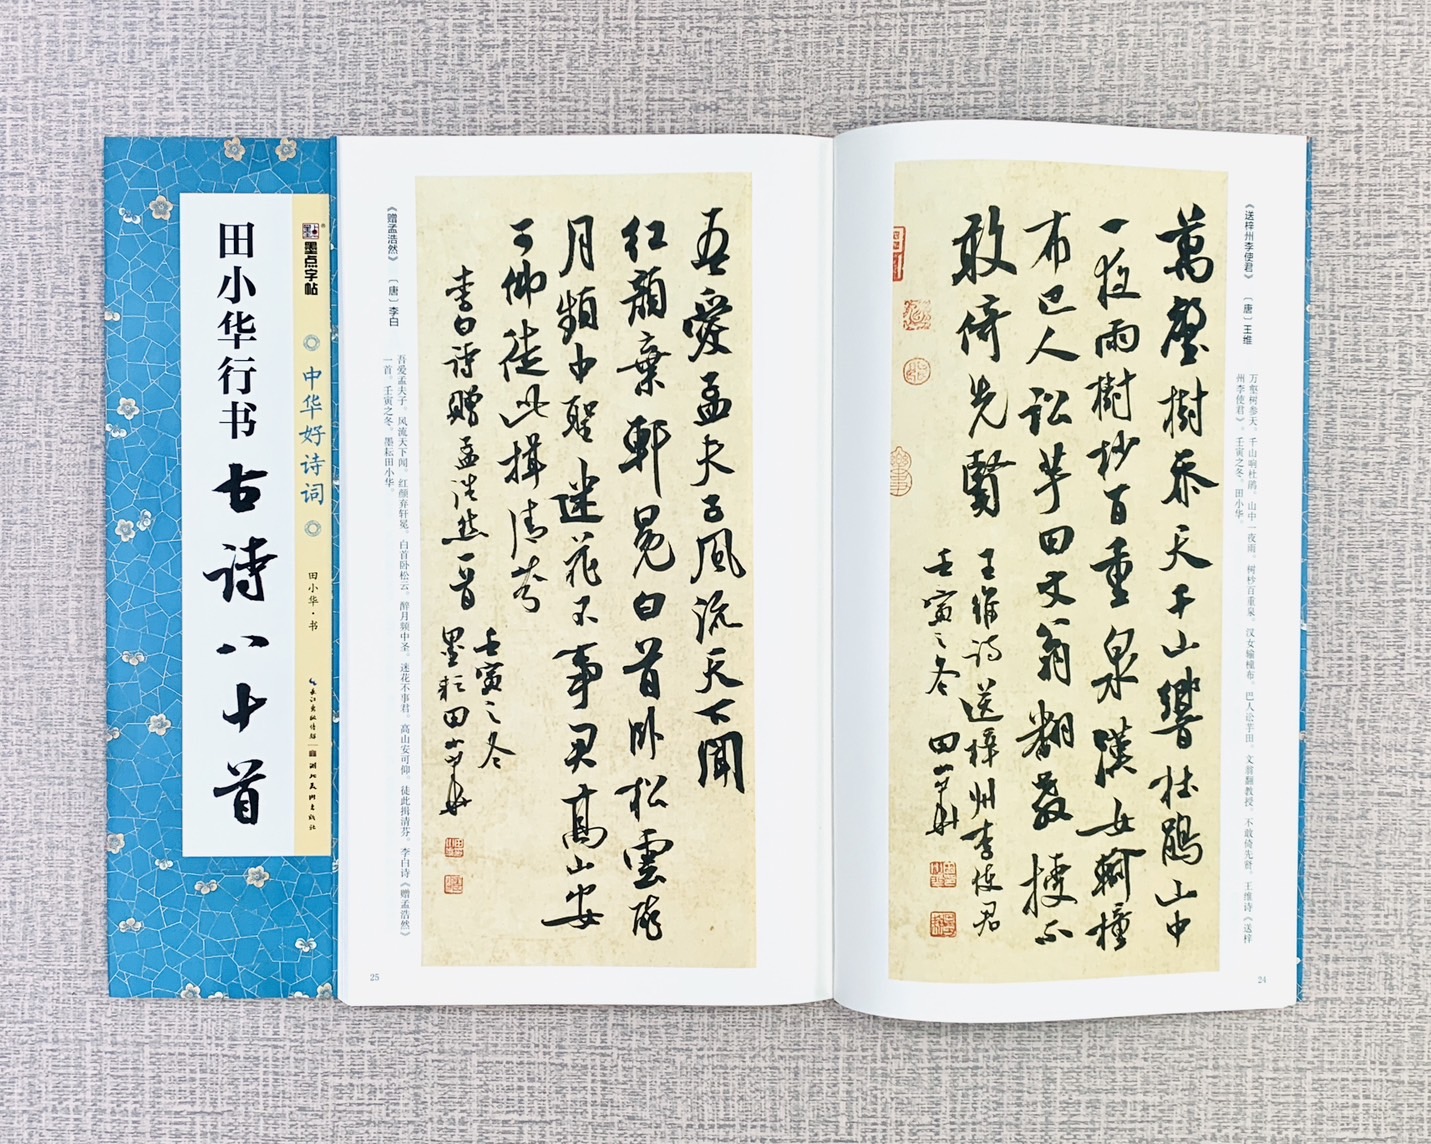 墨点字帖
中华好诗词
田小华·书
长江出版传媒 湖北美术出版社
田小华行书 古诗八十首
《送梓州李使君》 〔唐〕王维
万壑树参天。千山响杜鹃。山中一夜雨。树杪百重泉。汉女输橦布。巴人讼芋田。文翁翻教授。不敢倚先贤。王维诗《送梓
州李使君》。壬寅之冬。田小华。
萬壑樹參天千山響杜鵑山中
一夜雨樹杪百重泉漢女輸橦
布巴人訟芋田文翁翻教授不
敢倚先賢
王維詩送梓州李使君
壬寅之冬 田小華
24
吾愛孟夫子風流天下聞
紅顏棄軒冕白首臥松雲醉
月頻中聖迷花不事君高山安
可仰徒此揖清芬
李白詩贈孟浩然一首
壬寅之冬
墨耘田小華
《赠孟浩然》 〔唐〕李白
吾爱孟夫子。风流天下闻。红颜弃轩冕。白首卧松云。醉月频中圣。迷花不事君。高山安可仰。徒此揖清芬。李白诗《赠孟浩然》
一首。壬寅之冬。墨耘田小华。
25